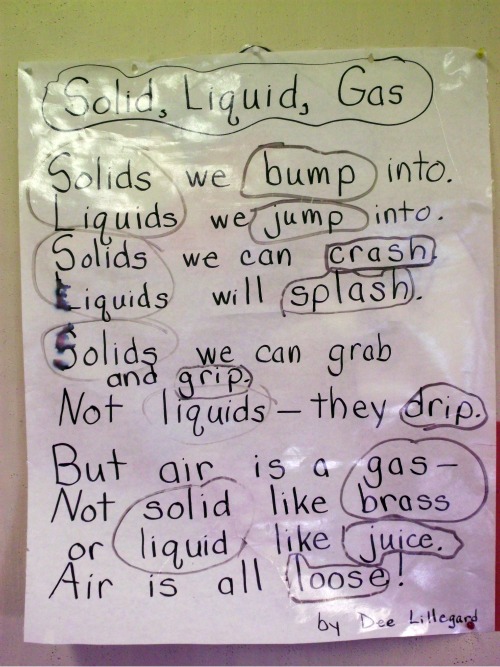 Solid, Liquid, Gas
Solids we bump into.
Liquids we jump into.
Solids we can crash.
Liquids will splash.
Solids we can grab
and grip.
Not liquids – they drip.
But air is a gas –
Not solid like brass
or liquid like juice.
Air is all loose!
by Dee Lillegard